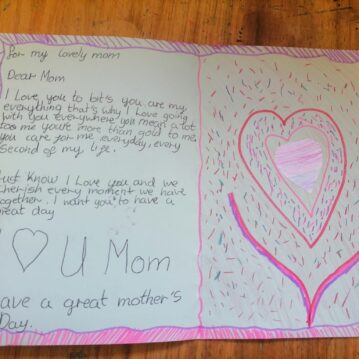 for my lovely mom
Dear Mom
I Love you to bit's you are my
everything that's why I Love going
with you everywhere you mean a lot
too me you're more than gold to me
you care for me everyday, every
second of my life.
Just know I Love you and we
cherish every moment we have
together. I want you to have a
great day
I ♡ U Mom
Have a great mother's
Day.